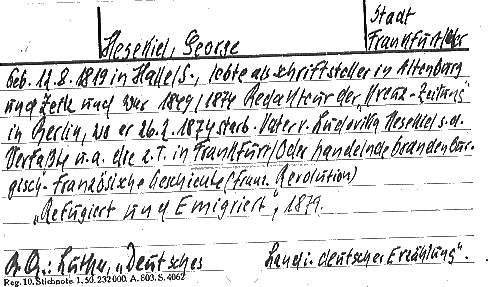 Stadt
Hesekiel, George Frankfurt/Oder
Geb. 12.8.1819 in Halle/S., lebte als Schriftsteller in Altenburg
und Zeitz und war 1849/1874 Redakteur der „Kreuz-Zeitung"
in Berlin, wo er 26.2.1874 starb. Vater v. Ludovika Hesekiel s.d.
Verfaßte u.a. die z.T. in Frankfurt/Oder handelnde brandenbur-
gisch-französische Geschichte (Franz. Revolution)
„Refugiert und Emigriert", 1879.
Qu.: Luther, „Deutsches Land i. deutscher Erzählung".
Reg. 10. Stichnote 1. 50. 232000. A. 803. S. 4062